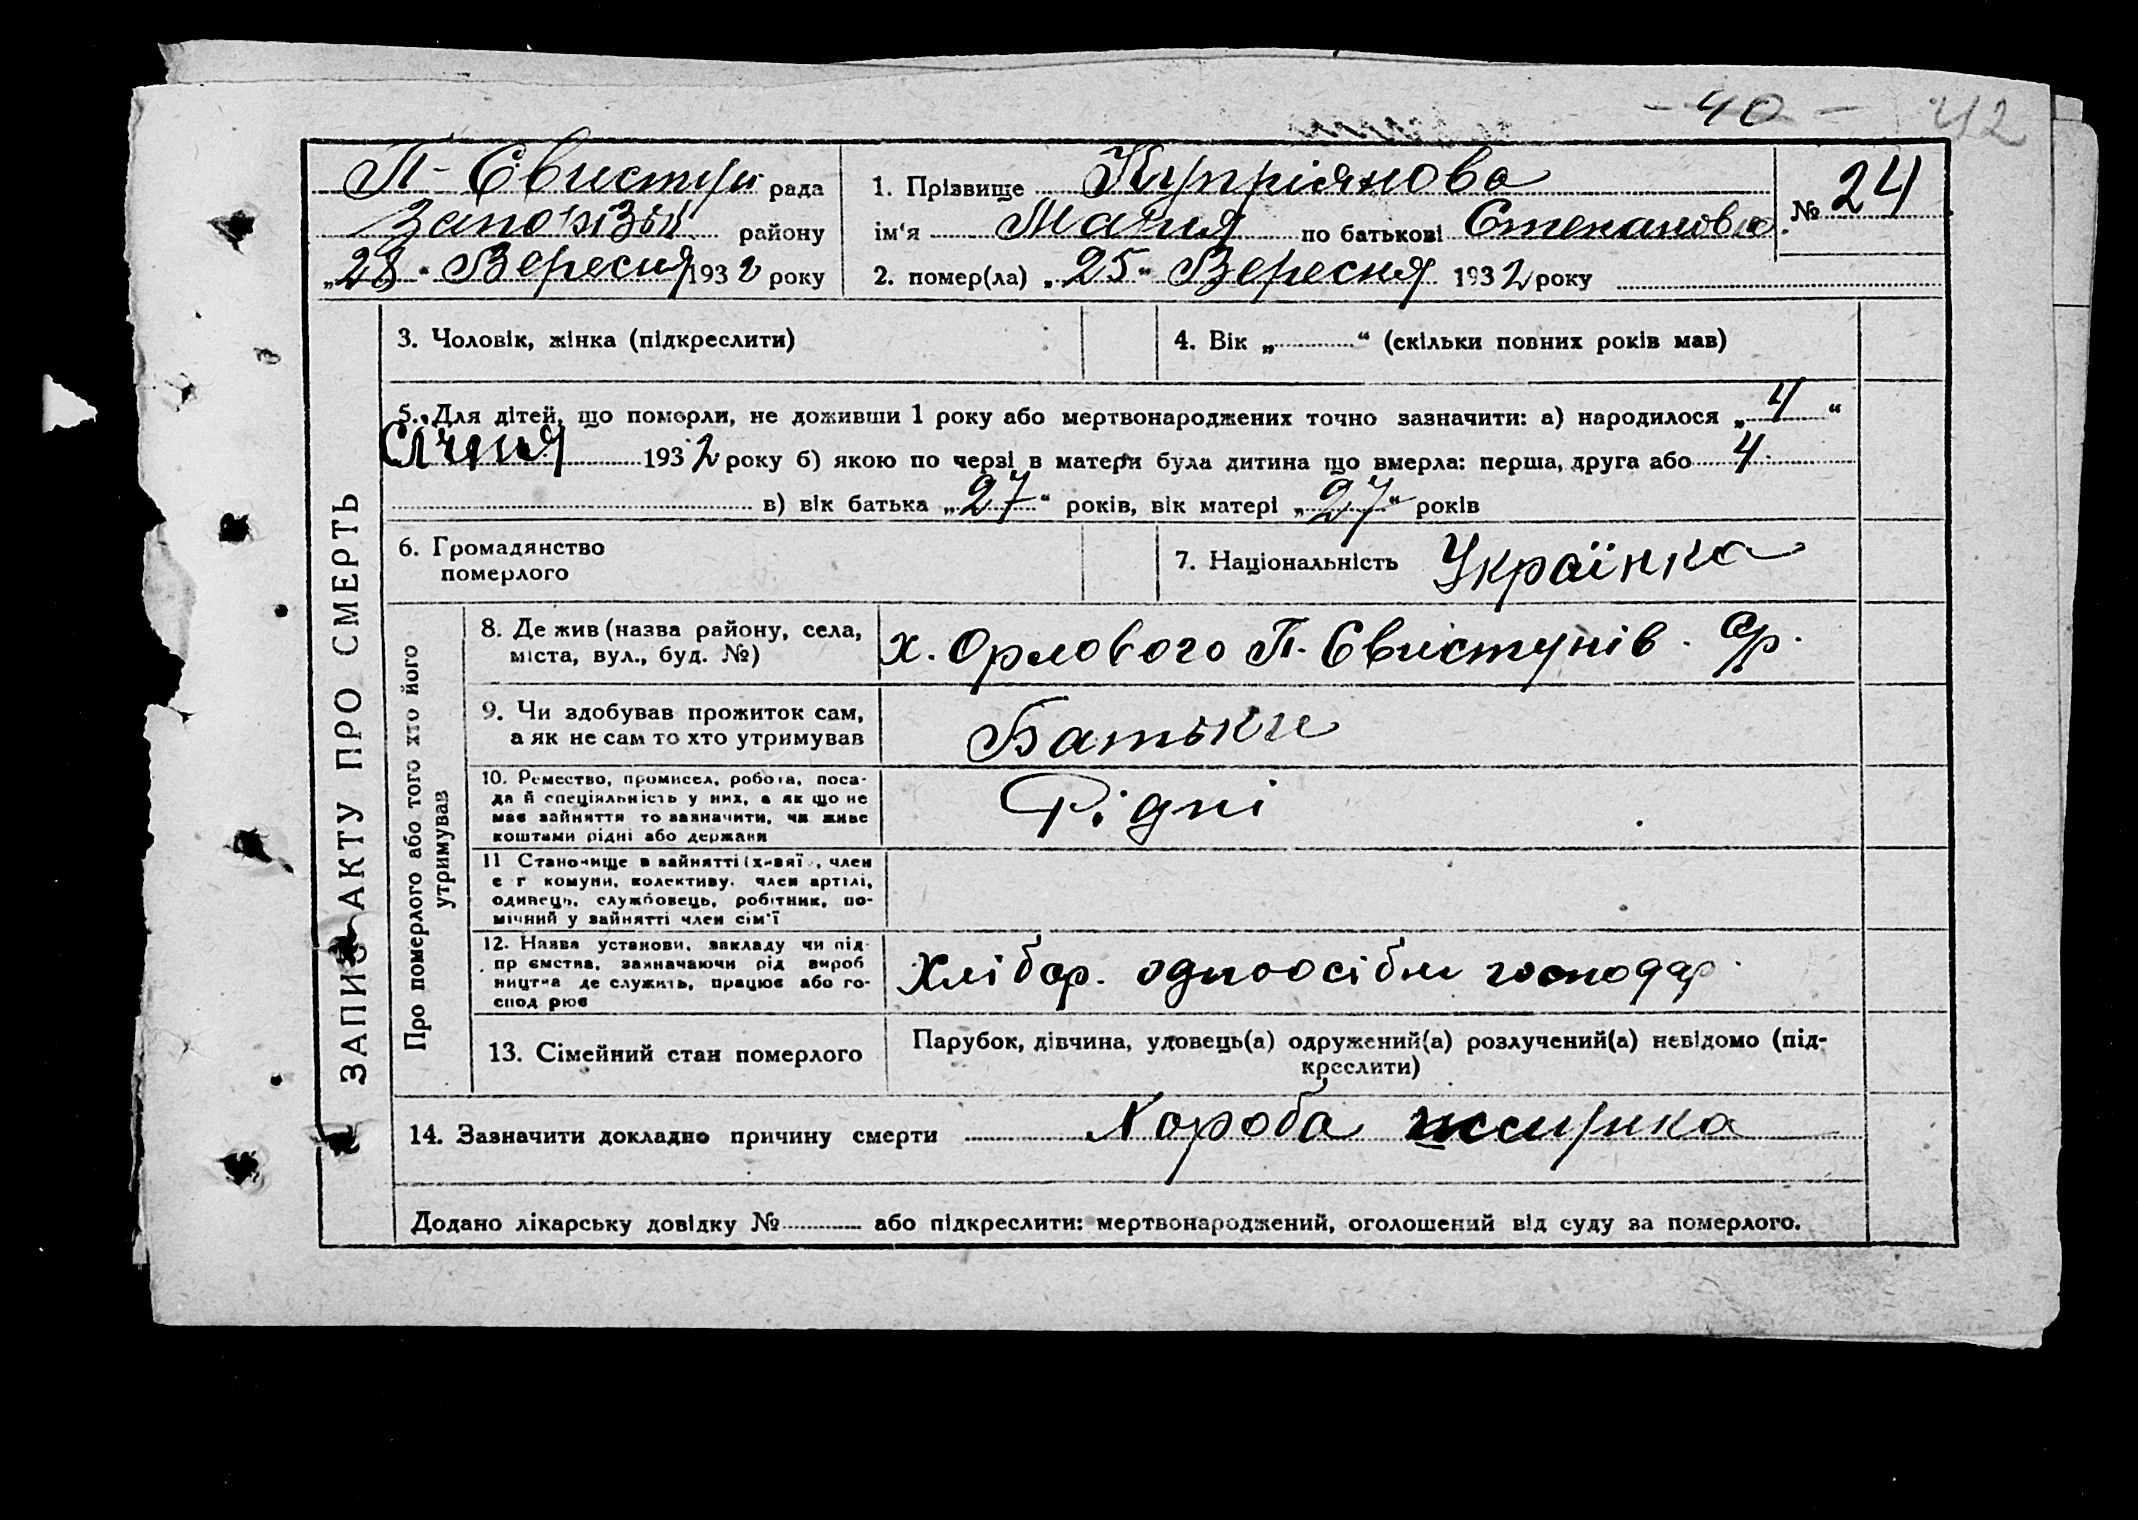 - 40 - 42
П - Євистун рада
району
„28“ Вересня 1932 року
1. Прізвище Купріянова
ім'я Мария по батькові Степановна
2. помер(ла) „25“ Вересня 1932 року
№ 24
ЗАПИС АКТУ ПРО СМЕРТЬ
3. Чоловік, жінка (підкреслити)
4. Вік „ “ (скільки повних років мав)
5. Для дітей, що померли, не доживши 1 року або мертвонароджених точно зазначити: а) народилося „4“
Січня 1932 року б) якою по черзі в матери була дитина що вмерла: перша, друга або 4
в) вік батька „27“ років, вік матері „27“ років
6. Громадянство
померлого
7. Національність Українка
Про померлого або того хто його
утримував
8. Де жив (назва району, села,
міста, вул., буд. №)
х. Орлового П. Євистунів. С/р.
9. Чи здобував прожиток сам,
а як не сам то хто утримував
Батьки
10. Ремество, промисел, робота, поса-
да й спеціяльність у них, а як що не
має зайняття то зазначити, чи живе
коштами рідні або держави
Рідні
11 Становище в зайнятті (хазяї , член
с г комуни, колективу, член артілі,
одинець, службовець, робітник, по-
мічний у зайнятті член сім'ї
12. Назва установи, закладу чи під-
пр ємства, зазначаючи рід вироб
ництва де служить, працює або го-
спод рює
Хлібор. одноосібн господар.
13. Сімейний стан померлого
Парубок, дівчина, удовець(а) одружений(а) розлучений(а) невідомо (під-
креслити)
14. Зазначити докладно причину смерти Хороба
Додано лікарську довідку № або підкреслити: мертвонароджений, оголошений від суду за померлого.